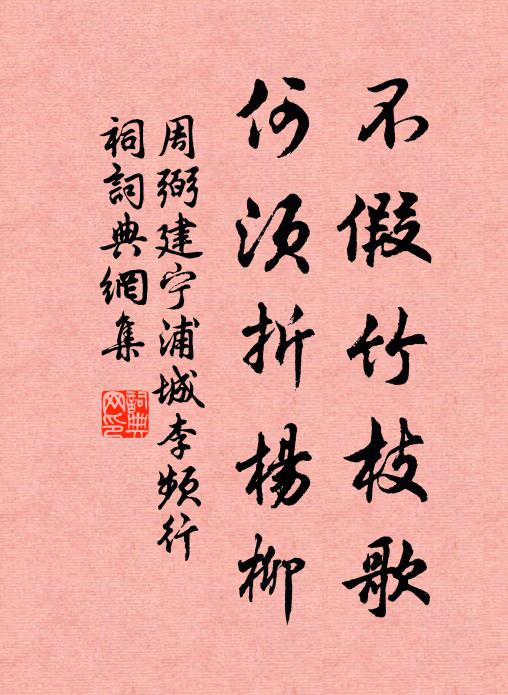 不假竹枝歌
何须折楊柳
周弼建宁浦城李频行
祠詞典網集
詞典
网印